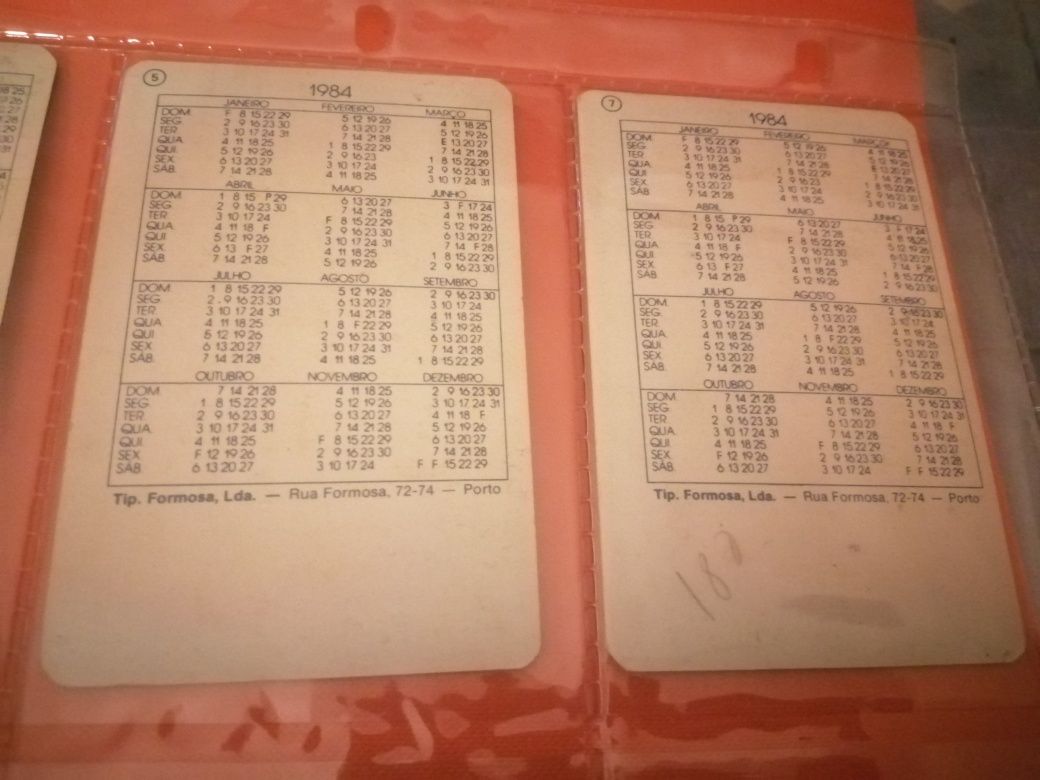 5
1984
JANEIRO FEVEREIRO MARÇO
DOM. F 8 15 22 29 5 12 19 26 4 11 18 25
SEG. 2 9 16 23 30 6 13 20 27 5 12 19 26
TER. 3 10 17 24 31 7 14 21 28 E 13 20 27
QUA. 4 11 18 25 1 8 15 22 29 7 14 21 28
QUI. 5 12 19 26 2 9 16 23 1 8 15 22 29
SEX. 6 13 20 27 3 10 17 24 2 9 16 23 30
SÁB. 7 14 21 28 4 11 18 25 3 10 17 24 31
ABRIL MAIO JUNHO
DOM. 1 8 15 P 29 6 13 20 27 3 F 17 24
SEG. 2 9 16 23 30 7 14 21 28 4 11 18 25
TER. 3 10 17 24 F 8 15 22 29 5 12 19 26
QUA. 4 11 18 F 2 9 16 23 30 6 13 20 27
QUI. 5 12 19 26 3 10 17 24 31 7 14 F 28
SEX. 6 13 F 27 4 11 18 25 1 8 15 22 29
SÁB. 7 14 21 28 5 12 19 26 2 9 16 23 30
JULHO AGOSTO SETEMBRO
DOM. 1 8 15 22 29 5 12 19 26 2 9 16 23 30
SEG. 2 9 16 23 30 6 13 20 27 3 10 17 24
TER. 3 10 17 24 31 7 14 21 28 4 11 18 25
QUA. 4 11 18 25 1 8 F 22 29 5 12 19 26
QUI. 5 12 19 26 2 9 16 23 30 6 13 20 27
SEX. 6 13 20 27 3 10 17 24 31 7 14 21 28
SÁB. 7 14 21 28 4 11 18 25 1 8 15 22 29
OUTUBRO NOVEMBRO DEZEMBRO
DOM. 7 14 21 28 4 11 18 25 2 9 16 23 30
SEG. 1 8 15 22 29 5 12 19 26 3 10 17 24 31
TER. 2 9 16 23 30 6 13 20 27 4 11 18 F
QUA. 3 10 17 24 31 7 14 21 28 5 12 19 26
QUI. 4 11 18 25 F 8 15 22 29 6 13 20 27
SEX. F 12 19 26 2 9 16 23 30 7 14 21 28
SÁB. 6 13 20 27 3 10 17 24 F F 15 22 29
Tip. Formosa, Lda. — Rua Formosa, 72-74 — Porto
7
1984
JANEIRO FEVEREIRO MARÇO
DOM. F 8 15 22 29 5 12 19 26 4 11 18 25
SEG. 2 9 16 23 30 6 13 20 27 5 12 19 26
TER. 3 10 17 24 31 7 14 21 28 E 13 20 27
QUA. 4 11 18 25 1 8 15 22 29 7 14 21 28
QUI. 5 12 19 26 2 9 16 23 1 8 15 22 29
SEX. 6 13 20 27 3 10 17 24 2 9 16 23 30
SÁB. 7 14 21 28 4 11 18 25 3 10 17 24 31
ABRIL MAIO JUNHO
DOM. 1 8 15 P 29 6 13 20 27 3 F 17 24
SEG. 2 9 16 23 30 7 14 21 28 4 11 18 25
TER. 3 10 17 24 F 8 15 22 29 5 12 19 26
QUA. 4 11 18 F 2 9 16 23 30 6 13 20 27
QUI. 5 12 19 26 3 10 17 24 31 7 14 F 28
SEX. 6 13 F 27 4 11 18 25 1 8 15 22 29
SÁB. 7 14 21 28 5 12 19 26 2 9 16 23 30
JULHO AGOSTO SETEMBRO
DOM. 1 8 15 22 29 5 12 19 26 2 9 16 23 30
SEG. 2 9 16 23 30 6 13 20 27 3 10 17 24
TER. 3 10 17 24 31 7 14 21 28 4 11 18 25
QUA. 4 11 18 25 1 8 F 22 29 5 12 19 26
QUI. 5 12 19 26 2 9 16 23 30 6 13 20 27
SEX. 6 13 20 27 3 10 17 24 31 7 14 21 28
SÁB. 7 14 21 28 4 11 18 25 1 8 15 22 29
OUTUBRO NOVEMBRO DEZEMBRO
DOM. 7 14 21 28 4 11 18 25 2 9 16 23 30
SEG. 1 8 15 22 29 5 12 19 26 3 10 17 24 31
TER. 2 9 16 23 30 6 13 20 27 4 11 18 F
QUA. 3 10 17 24 31 7 14 21 28 5 12 19 26
QUI. 4 11 18 25 F 8 15 22 29 6 13 20 27
SEX. F 12 19 26 2 9 16 23 30 7 14 21 28
SÁB. 6 13 20 27 3 10 17 24 F F 15 22 29
Tip. Formosa, Lda. — Rua Formosa, 72-74 — Porto